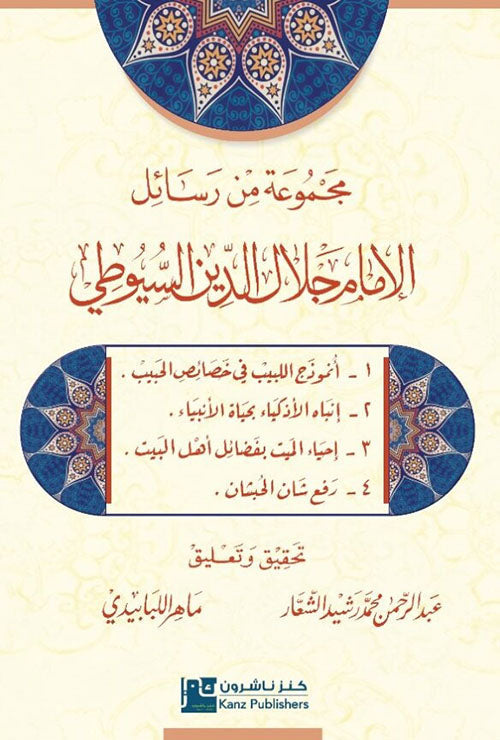 مَجْمُوعَة مِن رَسَائِل
الإمَام جَلَال الدِّين السُّيُوطِي
١ - أنموذَج اللبيب في خَصَائِص الحَبيب .
٢ - إنباه الأذكيَاء بحيَاة الأنبيَاء .
٣ - إحيَاء الميَت بفضَائل أهل البَيت .
٤ - رَفع شَان الحُبشان .
تحَقِيق وَتَعليق
عَبد الرَّحمن محمَّد رَشيد الشَّعَّار
مَاهِر اللبَابيدي
كنز ناشرون
Kanz Publishers